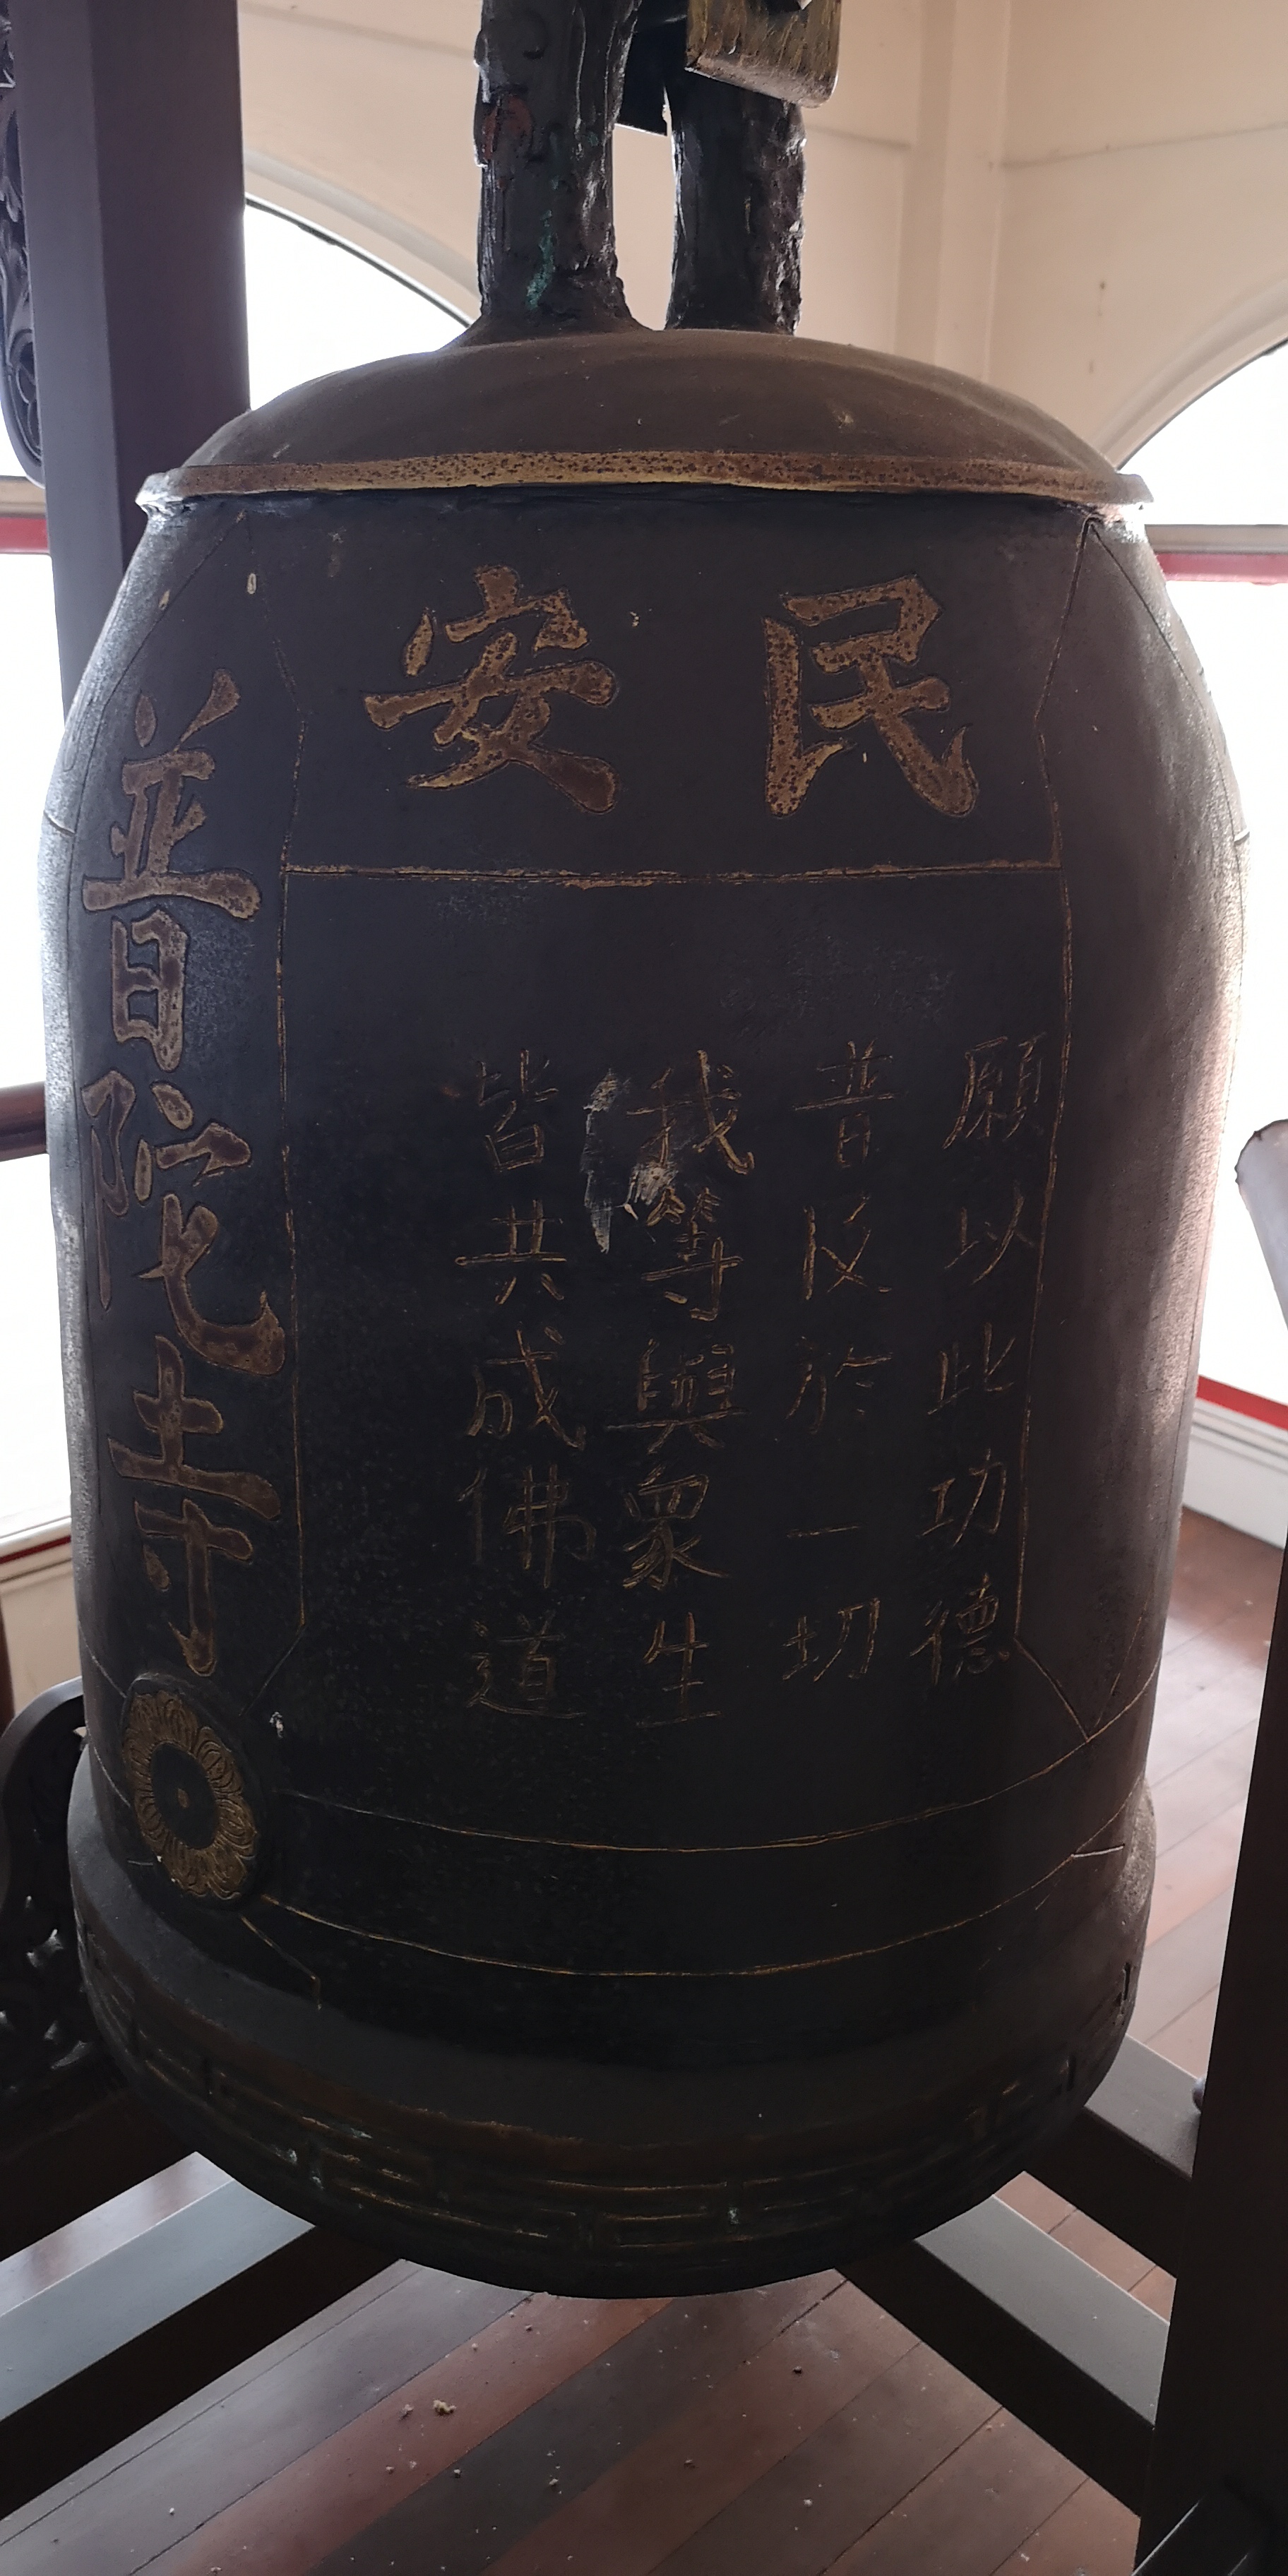 民安
願以此功德
普及於一切
我等與眾生
皆共成佛道
普陀寺